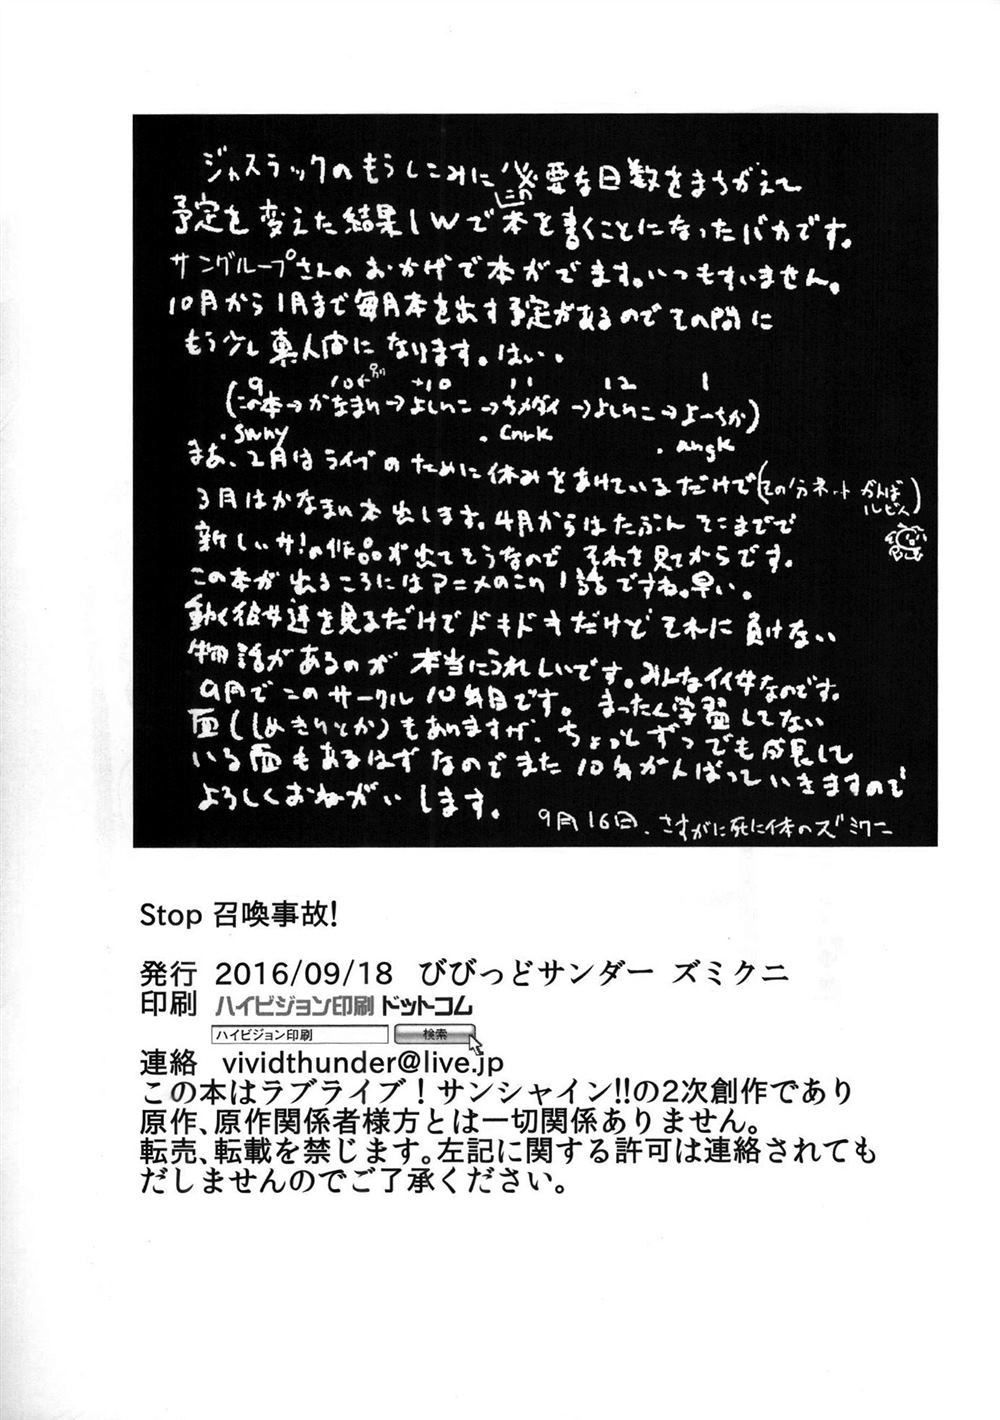 ジャスラックのもうしこみに必要な日数をまちがえて
予定を変えた結果1Wで本を書くことになったバカです。
サングループさんのおかげで本がでます。いつもすいません。
10月から1月まで毎月本を出す予定があるのでその間に
もう少し真人間になります。はい。
9 10 +10 11 12 1
(この本→かなまり→よしりこ→ちメダイ→よしりこ→よーちか)
.sunny .angk
まあ、2月はライブのために休みをあけているだけで(その分ネットがんば
3月はかなまり本出します。4月からはたぶんそこまでで
新しいサ!の作品が出てそうなので それを見てからです。
この本が出るころにはアニメのこり1話ですね。早い。
動く彼女達を見るだけでドキドキだけどそれに負けない
物語があるのが本当にうれしいです。みんなイイ女なのです。
9月でこのサークル10年目です。まったく学習してない
面(しめきりとか)もありますが、ちょっとずつでも成長して
いる面もあるはずなのでまた10年がんばっていきますので
よろしくおねがいします。
9月16日、さすがに死に体のズミクニ
Stop 召喚事故!
発行 2016/09/18 びびっどサンダー ズミクニ
印刷 ハイビジョン印刷 ドットコム
ハイビジョン印刷 検索
連絡 vividthunder@live.jp
この本はラブライブ!サンシャイン!!の2次創作であり
原作、原作関係者様方とは一切関係ありません。
転売、転載を禁じます。左記に関する許可は連絡されても
だしませんのでご了承ください。